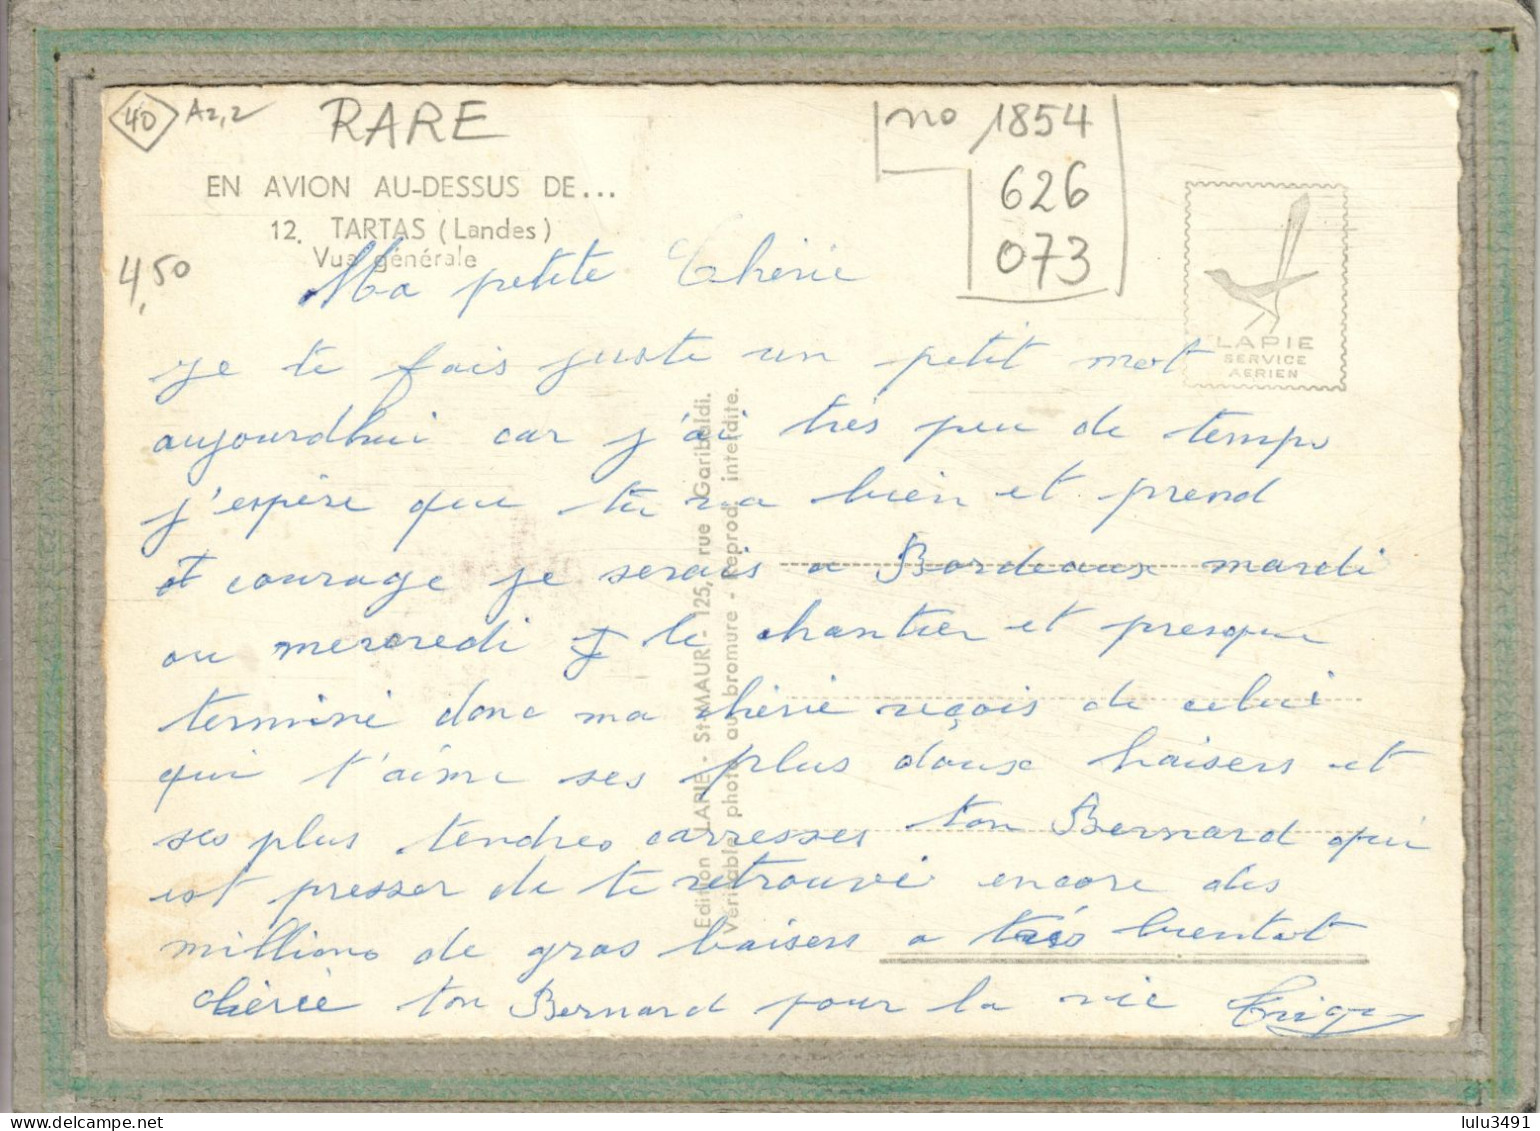 40 A2,2 RARE
no 1854
626
073
4,50
EN AVION AU-DESSUS DE...
12. TARTAS (Landes)
Vue générale
LAPIE
SERVICE
AERIEN
Ma petite Chérie
je te fais juste un petit mot
aujourdhui car j'ai très peu de temps
j'espère que tu va bien et prend
courage je serais a Bordeaux mardi
ou mercredi le chantier et presque
terminé donc ma chérie reçois de celui
qui t'aime ses plus doux baisers et
ses plus tendres carresses ton Bernard qui
est presser de te retrouvé encore des
millions de gros baisers a très bientot
chérie ton Bernard pour la vie
Edition LAPIE - St-MAUR - 125, rue Garibaldi.
Véritable photo au bromure - Reprod. interdite.
lulu3491